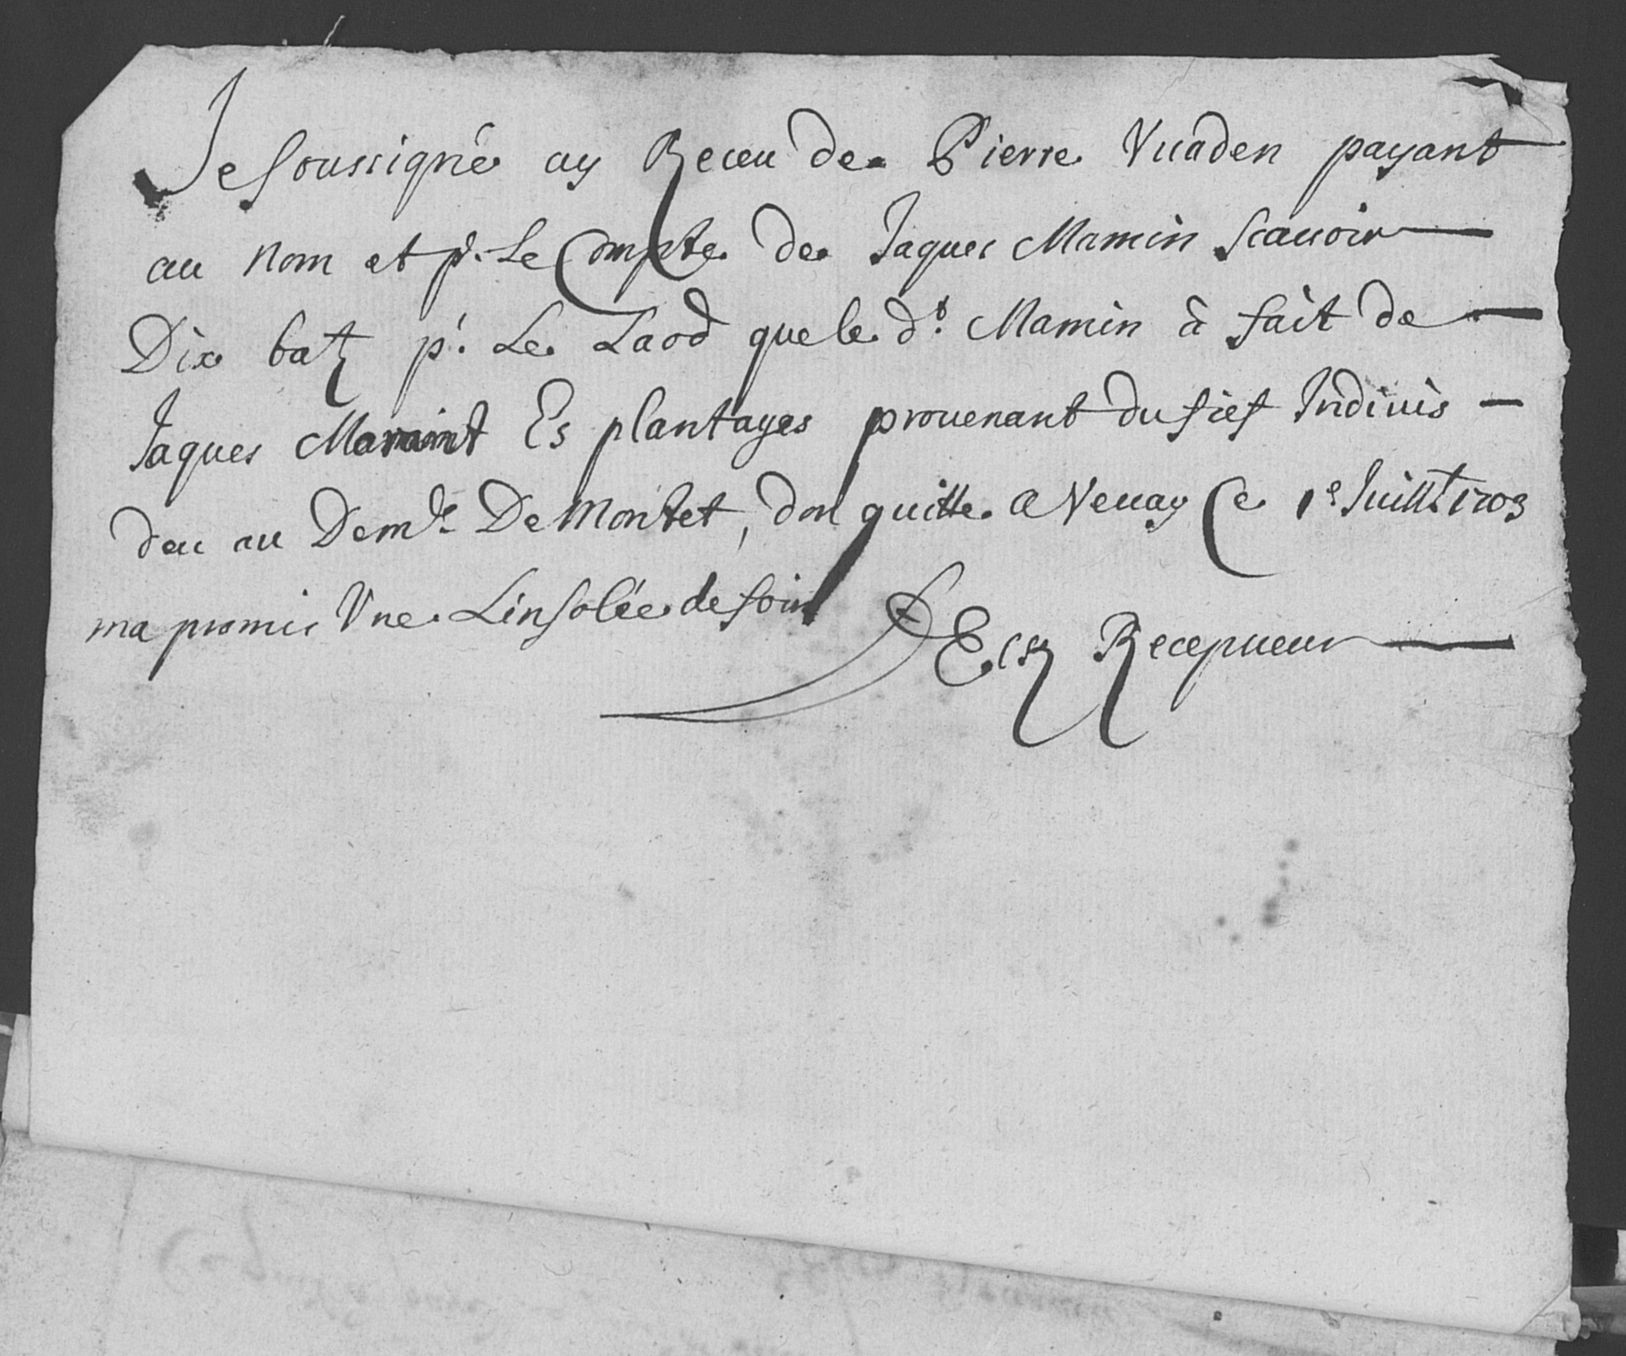 Je soussigné ay Receu de Pierre Vuaden payant
au nom et pr. Le Compte de Jaques Mamin scauoir
Dix batz pr. Le Laod que le dt. Mamin à fait de
Jaques Es plantages prouenant du fief Indiuis
deu au De Montet, don quitte a Veuay Ce 1e Juillt 1703
ma promis Vne Linsolée de foin
Recepueur